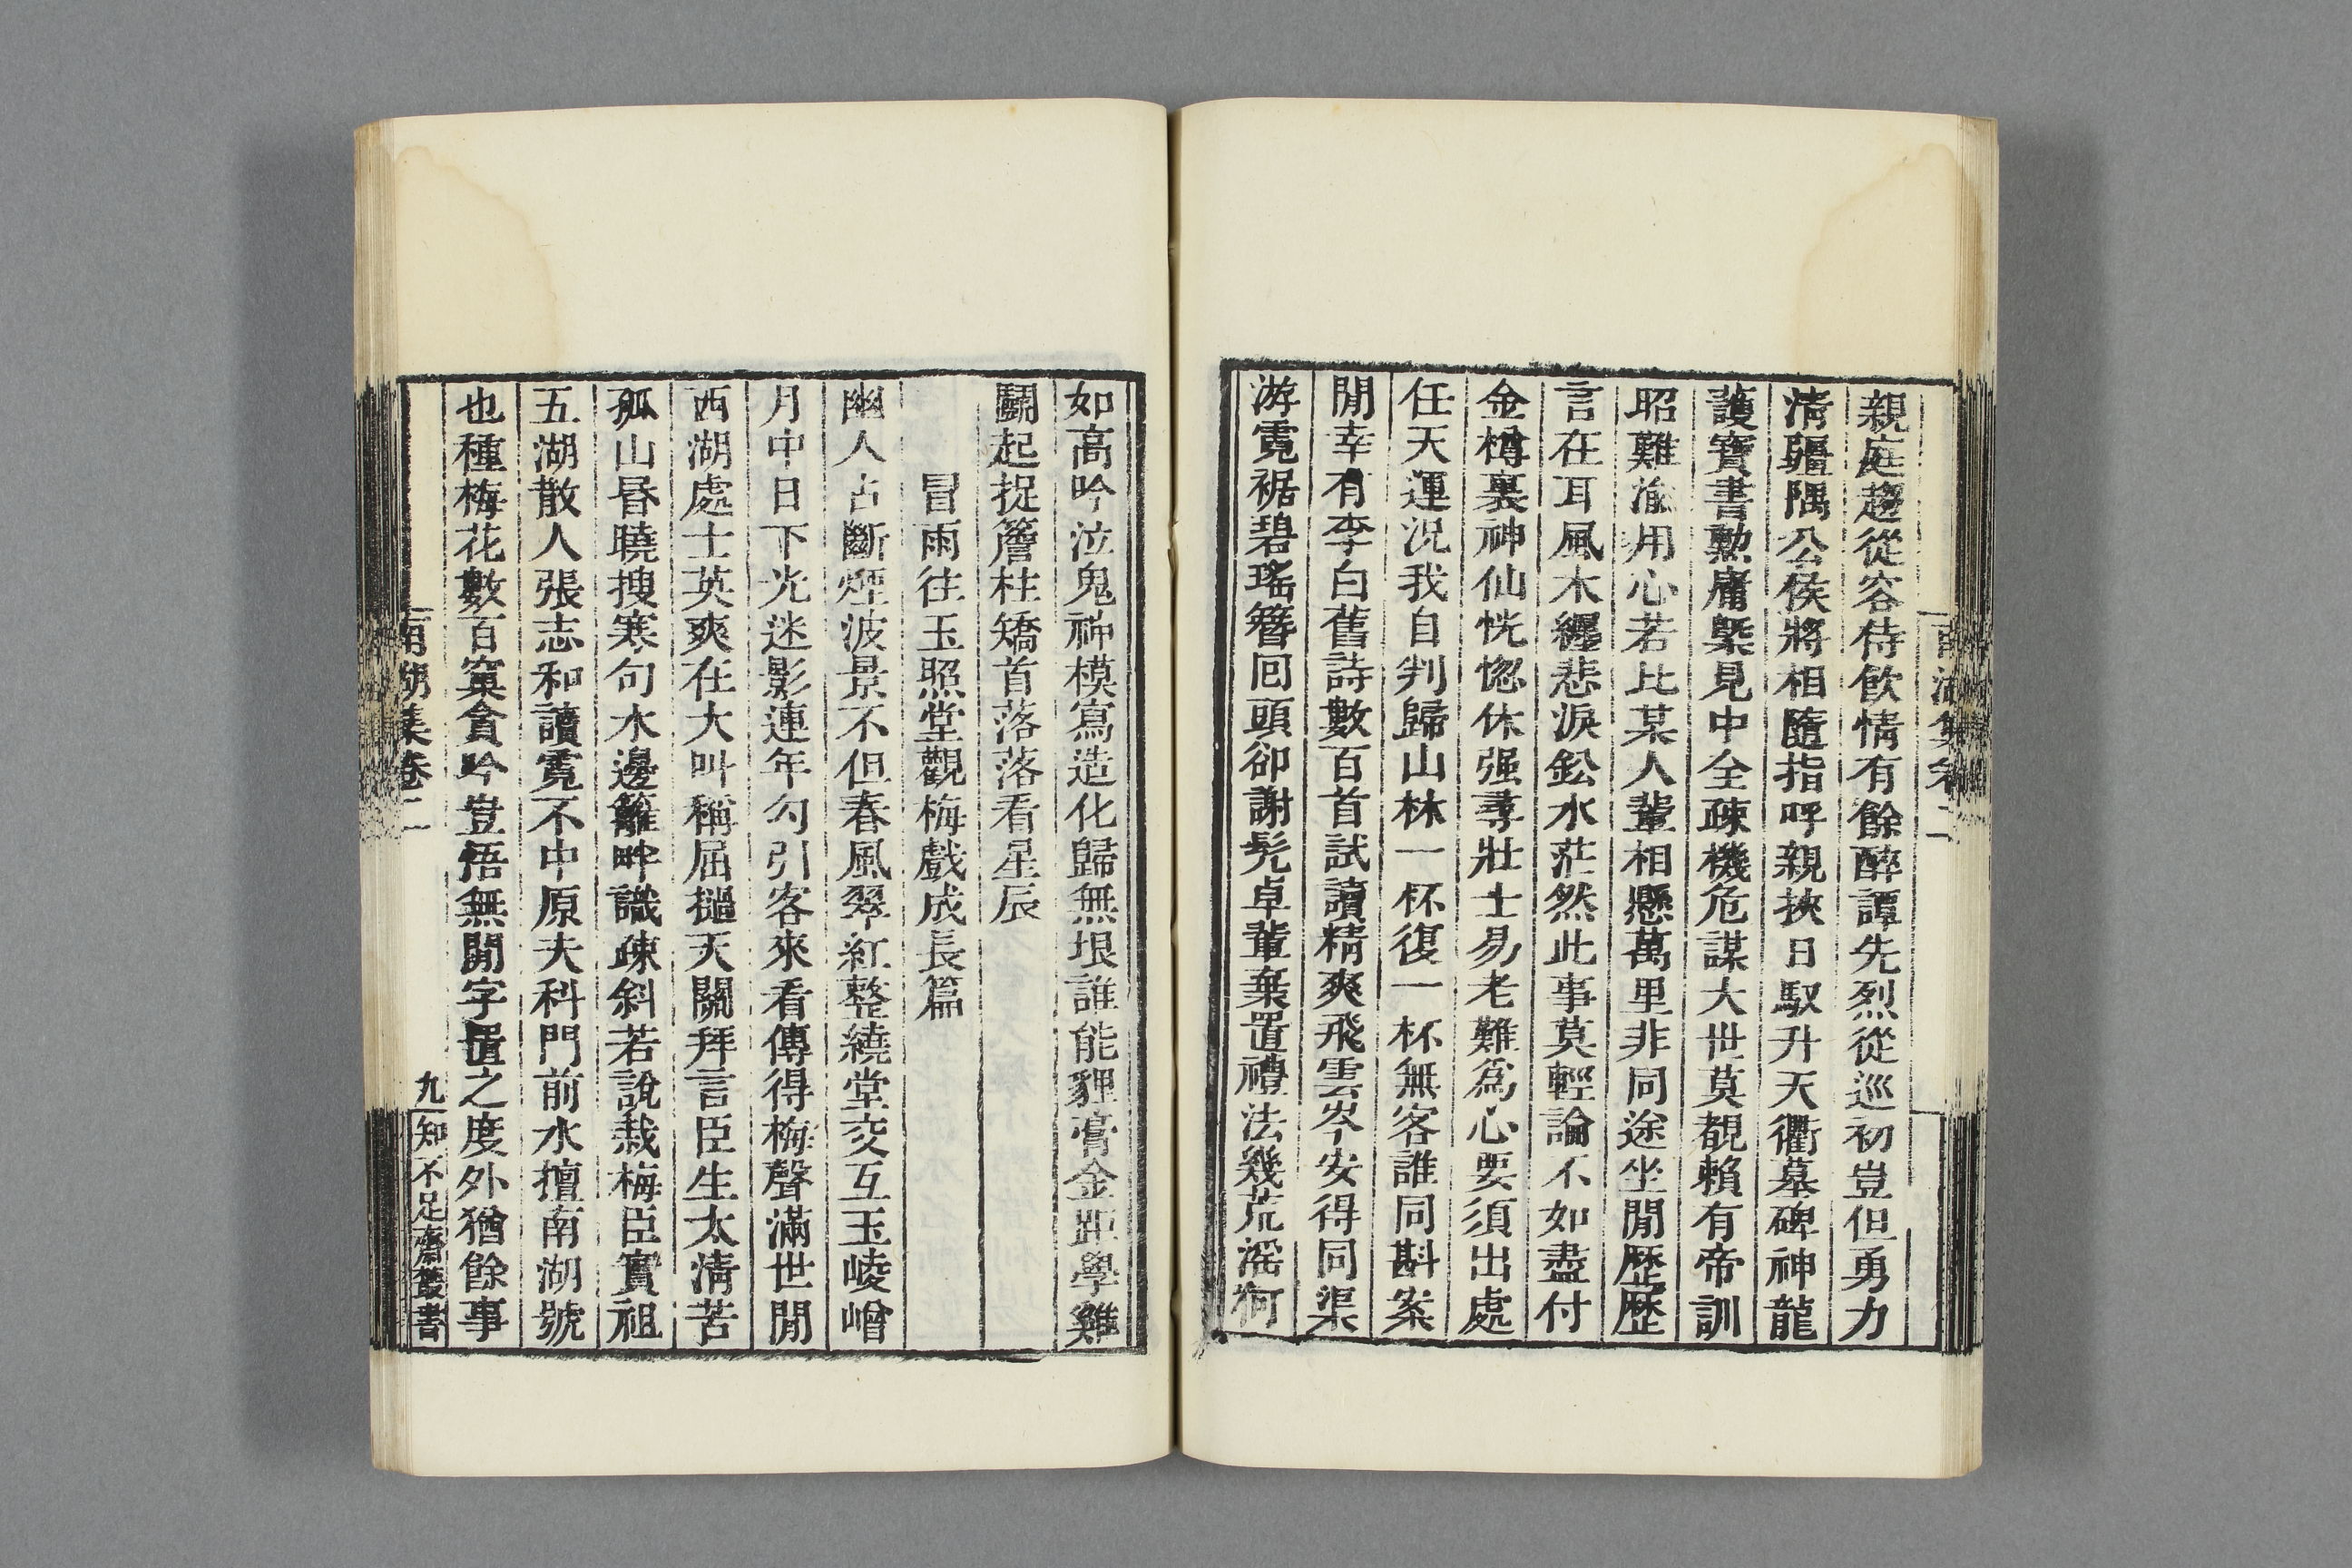 南湖集卷二
親庭趨從容侍飲情有餘醉譚先烈從巡初豈但勇力
清疆隅公侯將相隨指呼親挾日馭升天衢墓碑神龍
護寶書勲庸槩見中全疎機危謀大世莫覩賴有帝訓
昭難渝用心若比某人輩相懸萬里非同途坐閒歷歷
言在耳風木纒悲淚鉛水茫然此事莫輕論不如盡付
金樽裏神仙恍惚休强尋壯士易老難爲心要須出處
任天運況我自判歸山林一杯復一杯無客誰同斟案
閒幸有李白舊詩數百首試讀精爽飛雲岑安得同渠
游霓裾碧瑤簪囘頭卻謝旄卓輩棄置禮法幾荒滛柯
如高吟泣鬼神模寫造化歸無垠誰能貍膏金距學雞
鬭起捉簷柱矯首落落看星辰
冒雨往玉照堂觀梅戲成長篇
幽人占斷煙波景不但春風翠紅整繞堂交互玉崚嶒
月中日下光迷影連年勾引客來看傳得梅聲滿世閒
西湖處士英爽在大叫稱屈撾天關拜言臣生太清苦
孤山昬曉搜寒句水邊籬畔識疎斜若說栽梅臣實祖
五湖散人張志和讀霓不中原夫科門前水擅南湖號
也種梅花數百窠貪吟豈悟無閒字置之度外猶餘事
南湖集卷二
九
知不足齋叢書